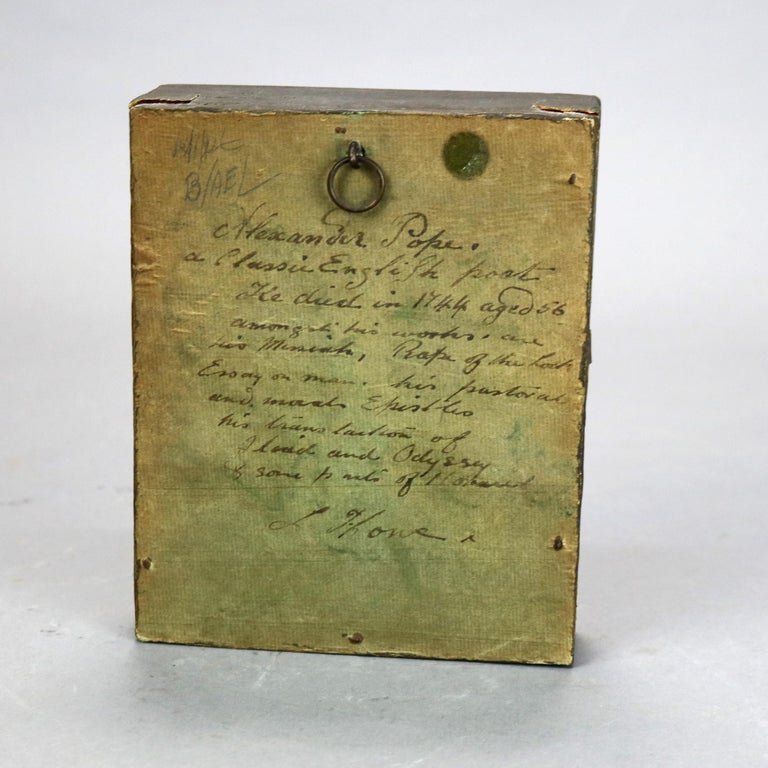 B/AE/
Alexander Pope.
a Classic English poet
He died in 1744 aged 56
amongst his works. are
his Missiah, Rape of the Lock
Essay on man. his pastoral
and morals Epistles
his translation of
Iliad and Odyssey
& some parts of